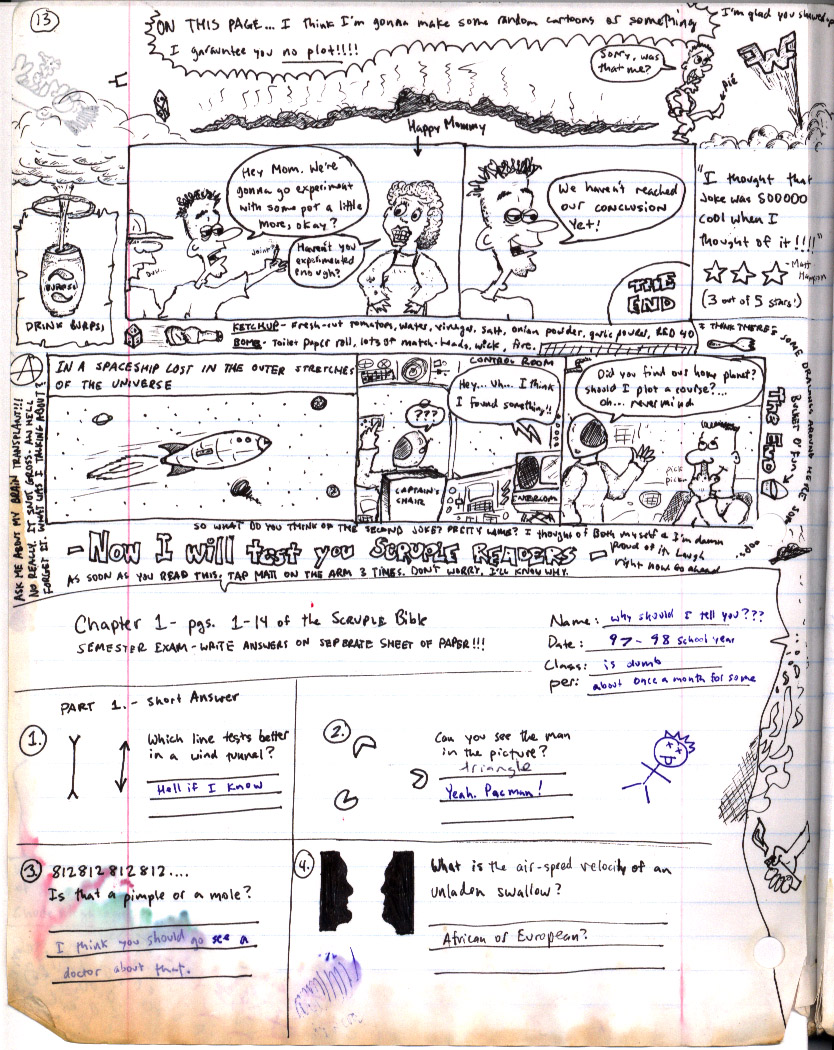 13
ON THIS PAGE... I think I'm gonna make some random cartoons or something
I garauntee you no plot!!!!
I'm glad you showed up
Sorry, was
that me?
DIE
Happy Mommy
Hey Mom. We're
gonna go experiment
with some pot a little
more, okay?
Joint
Haven't you
experimented
enough?
We haven't reached
our conclusion
yet!
THE
END
"I thought that
joke was SOOOOO
cool when I
thought of it!!!!"
(3 out of 5 stars!)
BURPSI
DRINK BURPSI
KETCHUP - Fresh-cut tomatoes, water, vinegar, salt, onion powder, garlic powder, RED 40
BOMB - Toilet paper roll, lots of match-heads, wick, fire.
I THINK THERE'S SOME DRAWINGS AROUND HERE
A
IN A SPACESHIP LOST IN THE OUTER STRETCHES
OF THE UNIVERSE
CONTROL ROOM
???
CAPTAIN'S
CHAIR
Hey... uh... I think
I found something!!
INTERCOM
Did you find our home planet?
Should I plot a course?...
Oh... nevermind
pick
pick
The END
Basket o' Fun
ASK ME ABOUT MY BRAIN TRANSPLANT!!!
NO REALLY. IT'S NOT GROSS. AW HELL
FORGET IT. WHAT WAS I TALKIN ABOUT?
SO WHAT DID YOU THINK OF THE SECOND JOKE? PRETTY LAME? I thought of Both myself & I'm damn
proud of it. Laugh
right now. Go ahead
...do.
- NOW I will test you SCRUPLE READERS -
AS SOON AS YOU READ THIS, TAP MATT ON THE ARM 3 TIMES. DON'T WORRY, I'LL KNOW WHY.
Chapter 1- pgs. 1-14 of the SCRUPLE Bible
SEMESTER EXAM-WRITE ANSWERS ON SEPERATE SHEET OF PAPER!!!
Name: why should I tell you???
Date: 97-98 school year
Class: is dumb
per: about once a month for some
PART 1.- short Answer
1.
Which line tests better
in a wind tunnel?
Hell if I know
2.
Can you see the man
in the picture?
triangle
Yeah. Pacman!
3.
812812812812....
Is that a pimple or a mole?
I think you should go see a
doctor about that.
4.
What is the air-speed velocity of an
unladen swallow?
African or European?